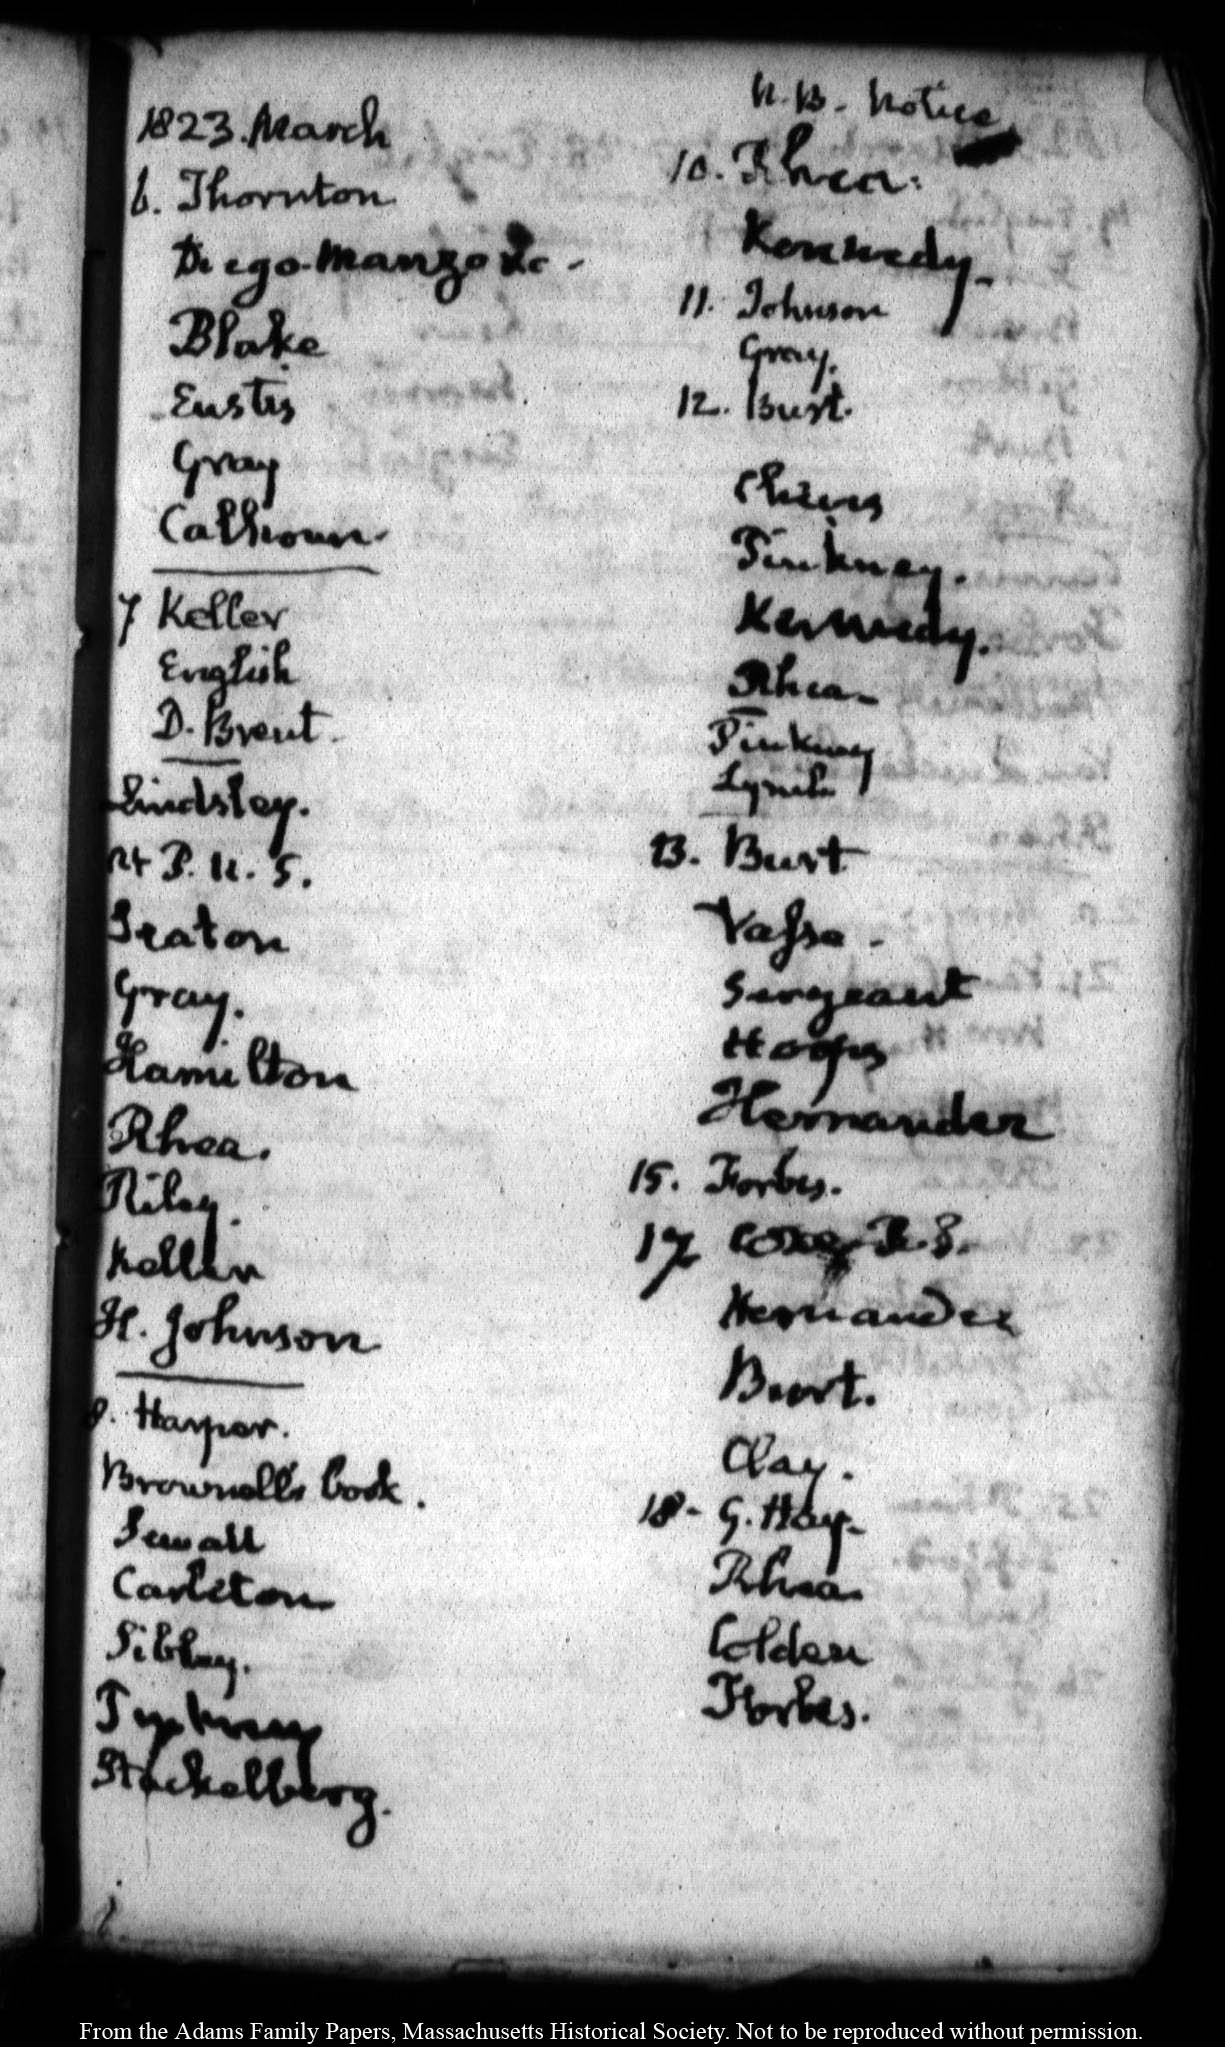 1823. March
6. Thornton
Diego Manzo
Blake
Eustis
Gray
Calhoun.
7 Keller
English
D. Brent.
Lindsley.
at P. U. S.
Seaton
Gray.
Hamilton
Rhea.
Riley.
Kellen
H. Johnson
8. Harper.
Brownell's book.
Sewall
Carleton
Sibley.
Stackelberg.
N. B. Notice
10. Rhea.
Kennedy.
11. Johnson
Gray.
12. Burt.
Cheves
Pinkney.
Kennedy.
Rhea
Pinkney
Lynch
13. Burt
Vasse.
Sergeant
Hoops
Hernandez
15. Forbes.
17 Coxe R. S.
Hernandez
Burt.
Clay.
18. G. Hay.
Rhea.
Colden
Forbes.
From the Adams Family Papers, Massachusetts Historical Society. Not to be reproduced without permission.